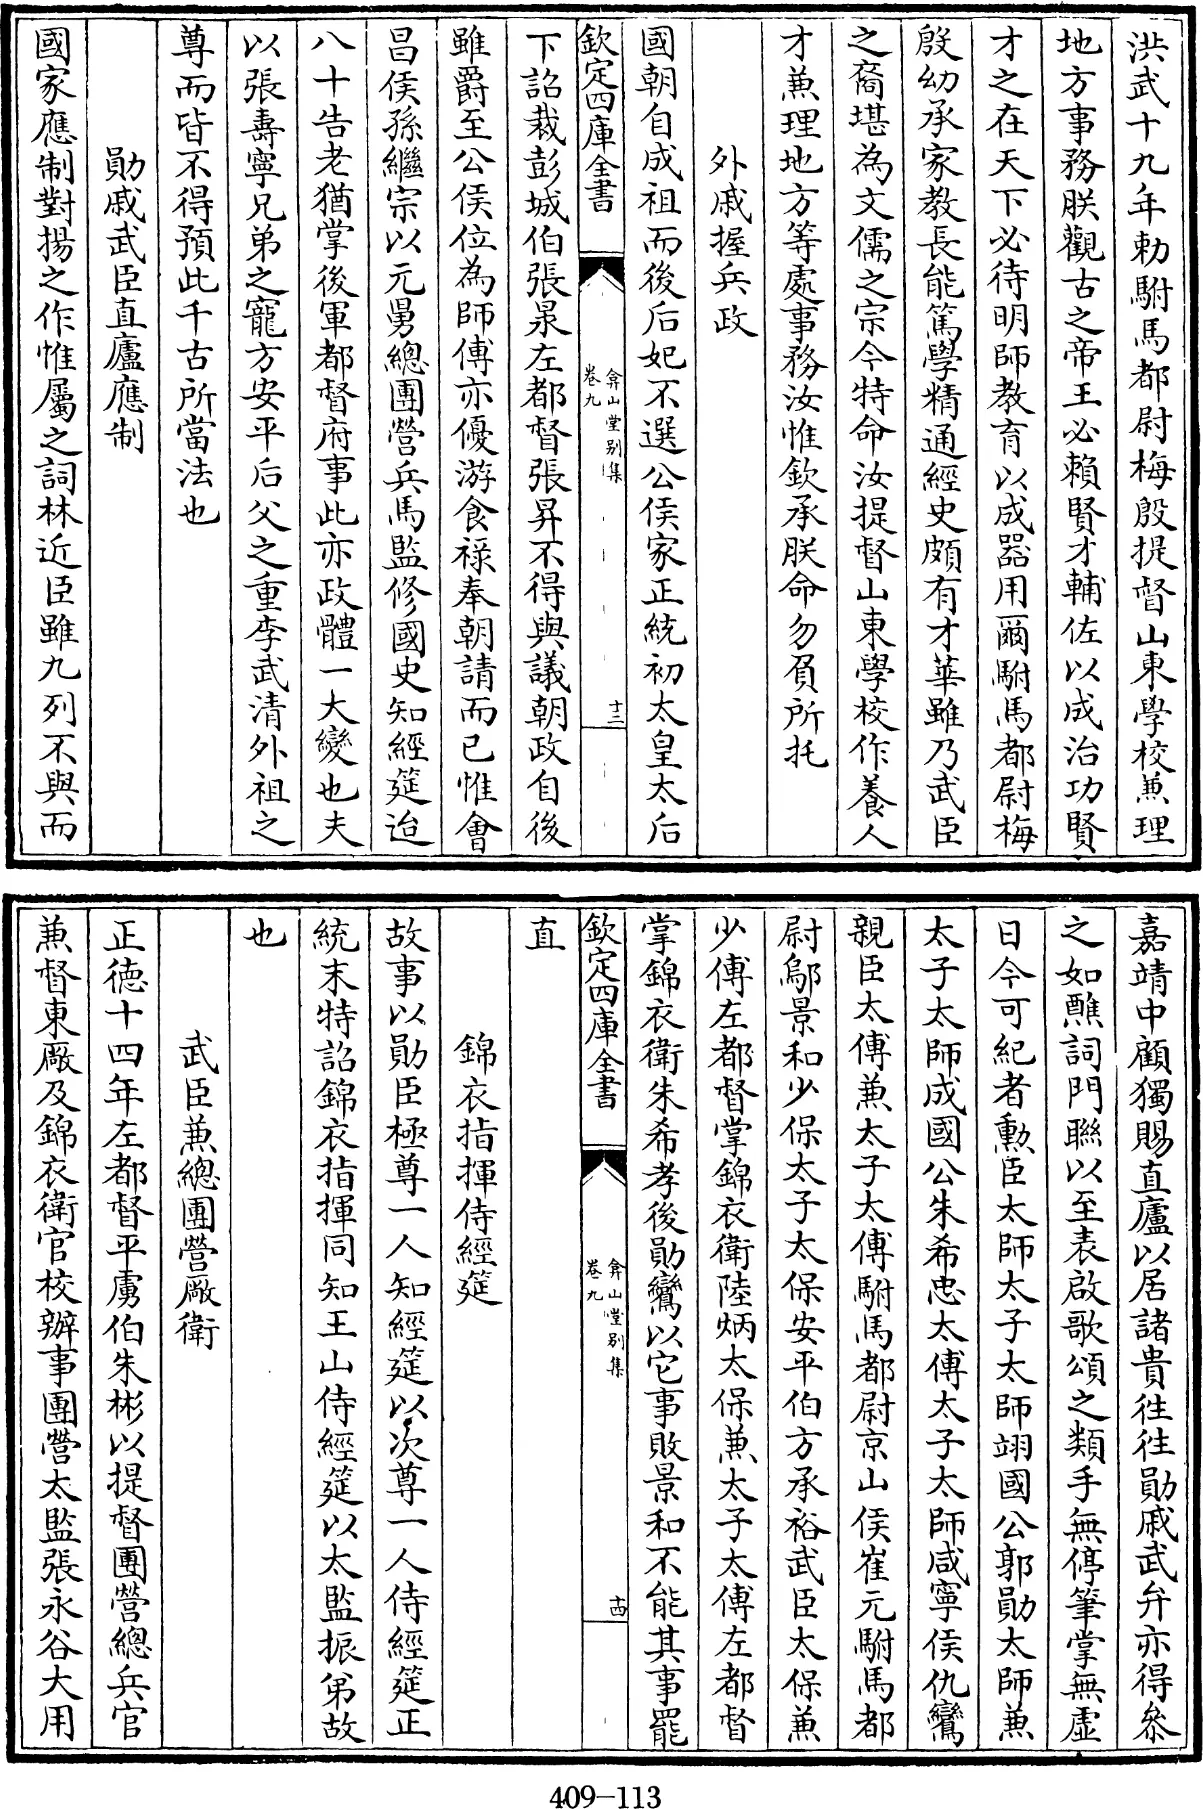 洪武十九年勅駙馬都尉梅殷提督山東學校兼理
地方事務朕觀古之帝王必賴賢才輔佐以成治功賢
才之在天下必待明師教育以成器用爾駙馬都尉梅
殷幼承家教長能篤學精通經史頗有才華雖乃武臣
之裔堪為文儒之宗今特命汝提督山東學校作養人
才兼理地方等處事務汝惟欽承朕命勿負所托
外戚握兵政
國朝自成祖而後后妃不選公侯家正統初太皇太后
欽定四庫全書
弇山堂别集
卷九
十三
下詔裁彭城伯張㫤左都督張昇不得與議朝政自後
雖爵至公侯位為師傅亦優游食祿奉朝請而已惟會
昌侯孫繼宗以元舅總團營兵馬監修國史知經筵迨
八十告老猶掌後軍都督府事此亦政體一大變也夫
以張壽寧兄弟之寵方安平后父之重李武清外祖之
尊而皆不得預此千古所當法也
勛戚武臣直廬應制
國家應制對揚之作惟屬之詞林近臣雖九列不與而
嘉靖中顧獨賜直廬以居諸貴往往勛戚武弁亦得叅
之如醮詞門聯以至表啟歌頌之類手無停筆掌無虛
日今可紀者勲臣太師太子太師翊國公郭勛太師兼
太子太師成國公朱希忠太傅太子太師咸寧侯仇鸞
親臣太傅兼太子太傅駙馬都尉京山侯崔元駙馬都
尉鄔景和少保太子太保安平伯方承裕武臣太保兼
少傅左都督掌錦衣衛陸炳太保兼太子太傅左都督
掌錦衣衛朱希孝後勛鸞以它事敗景和不能其事罷
欽定四庫全書
弇山堂别集
卷九
十四
直
錦衣指揮侍經筵
故事以勛臣極尊一人知經筵以次尊一人侍經筵正
統末特詔錦衣指揮同知王山侍經筵以太監振弟故
也
武臣兼總團營廠衛
正德十四年左都督平虜伯朱彬以提督團營總兵官
兼督東廠及錦衣衛官校辦事團營太監張永谷大用
409-113